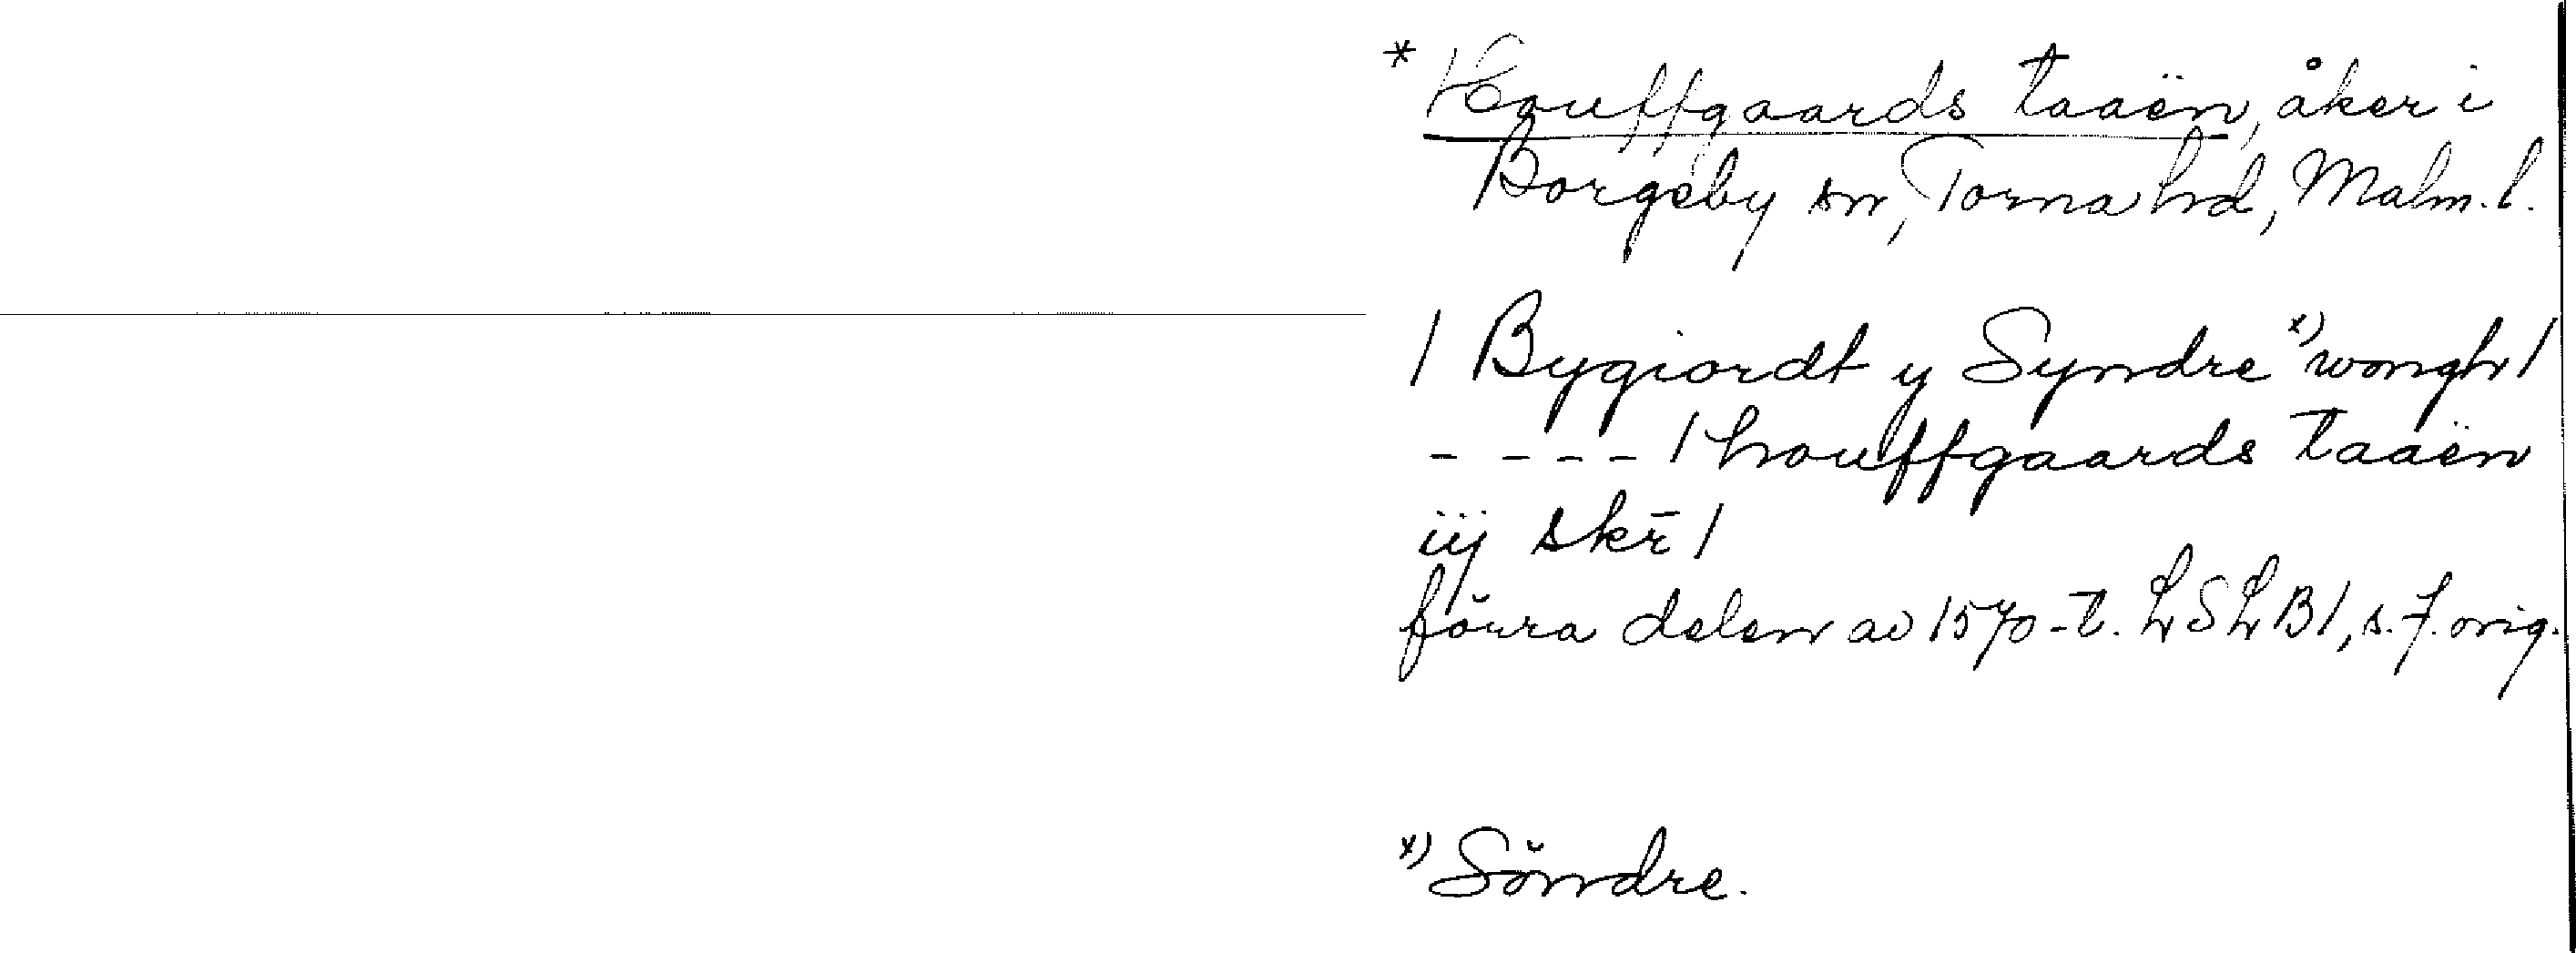 * Houffgaards taaën, åker i
Borgeby sn, Torna hd, Malm. l.
/ Bygiordt y Syndre x) wongh /
- - - - / houffgaards taaën
iij skr̄ /
förra delen av 1570-t. LSLB1, s. 7. orig.
x) Söndre.